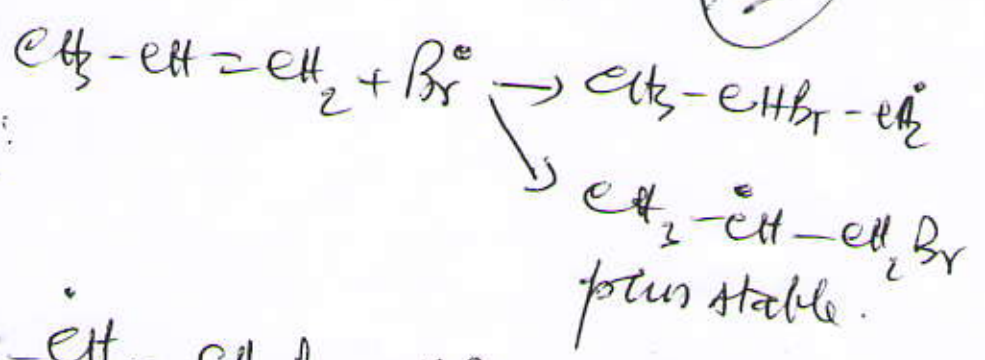 CH₃-CH=CH₂ + Br• → CH₃-CHBr-CH₂•
↘ CH₃-ĊH-CH₂Br
plus stable.
ĊH